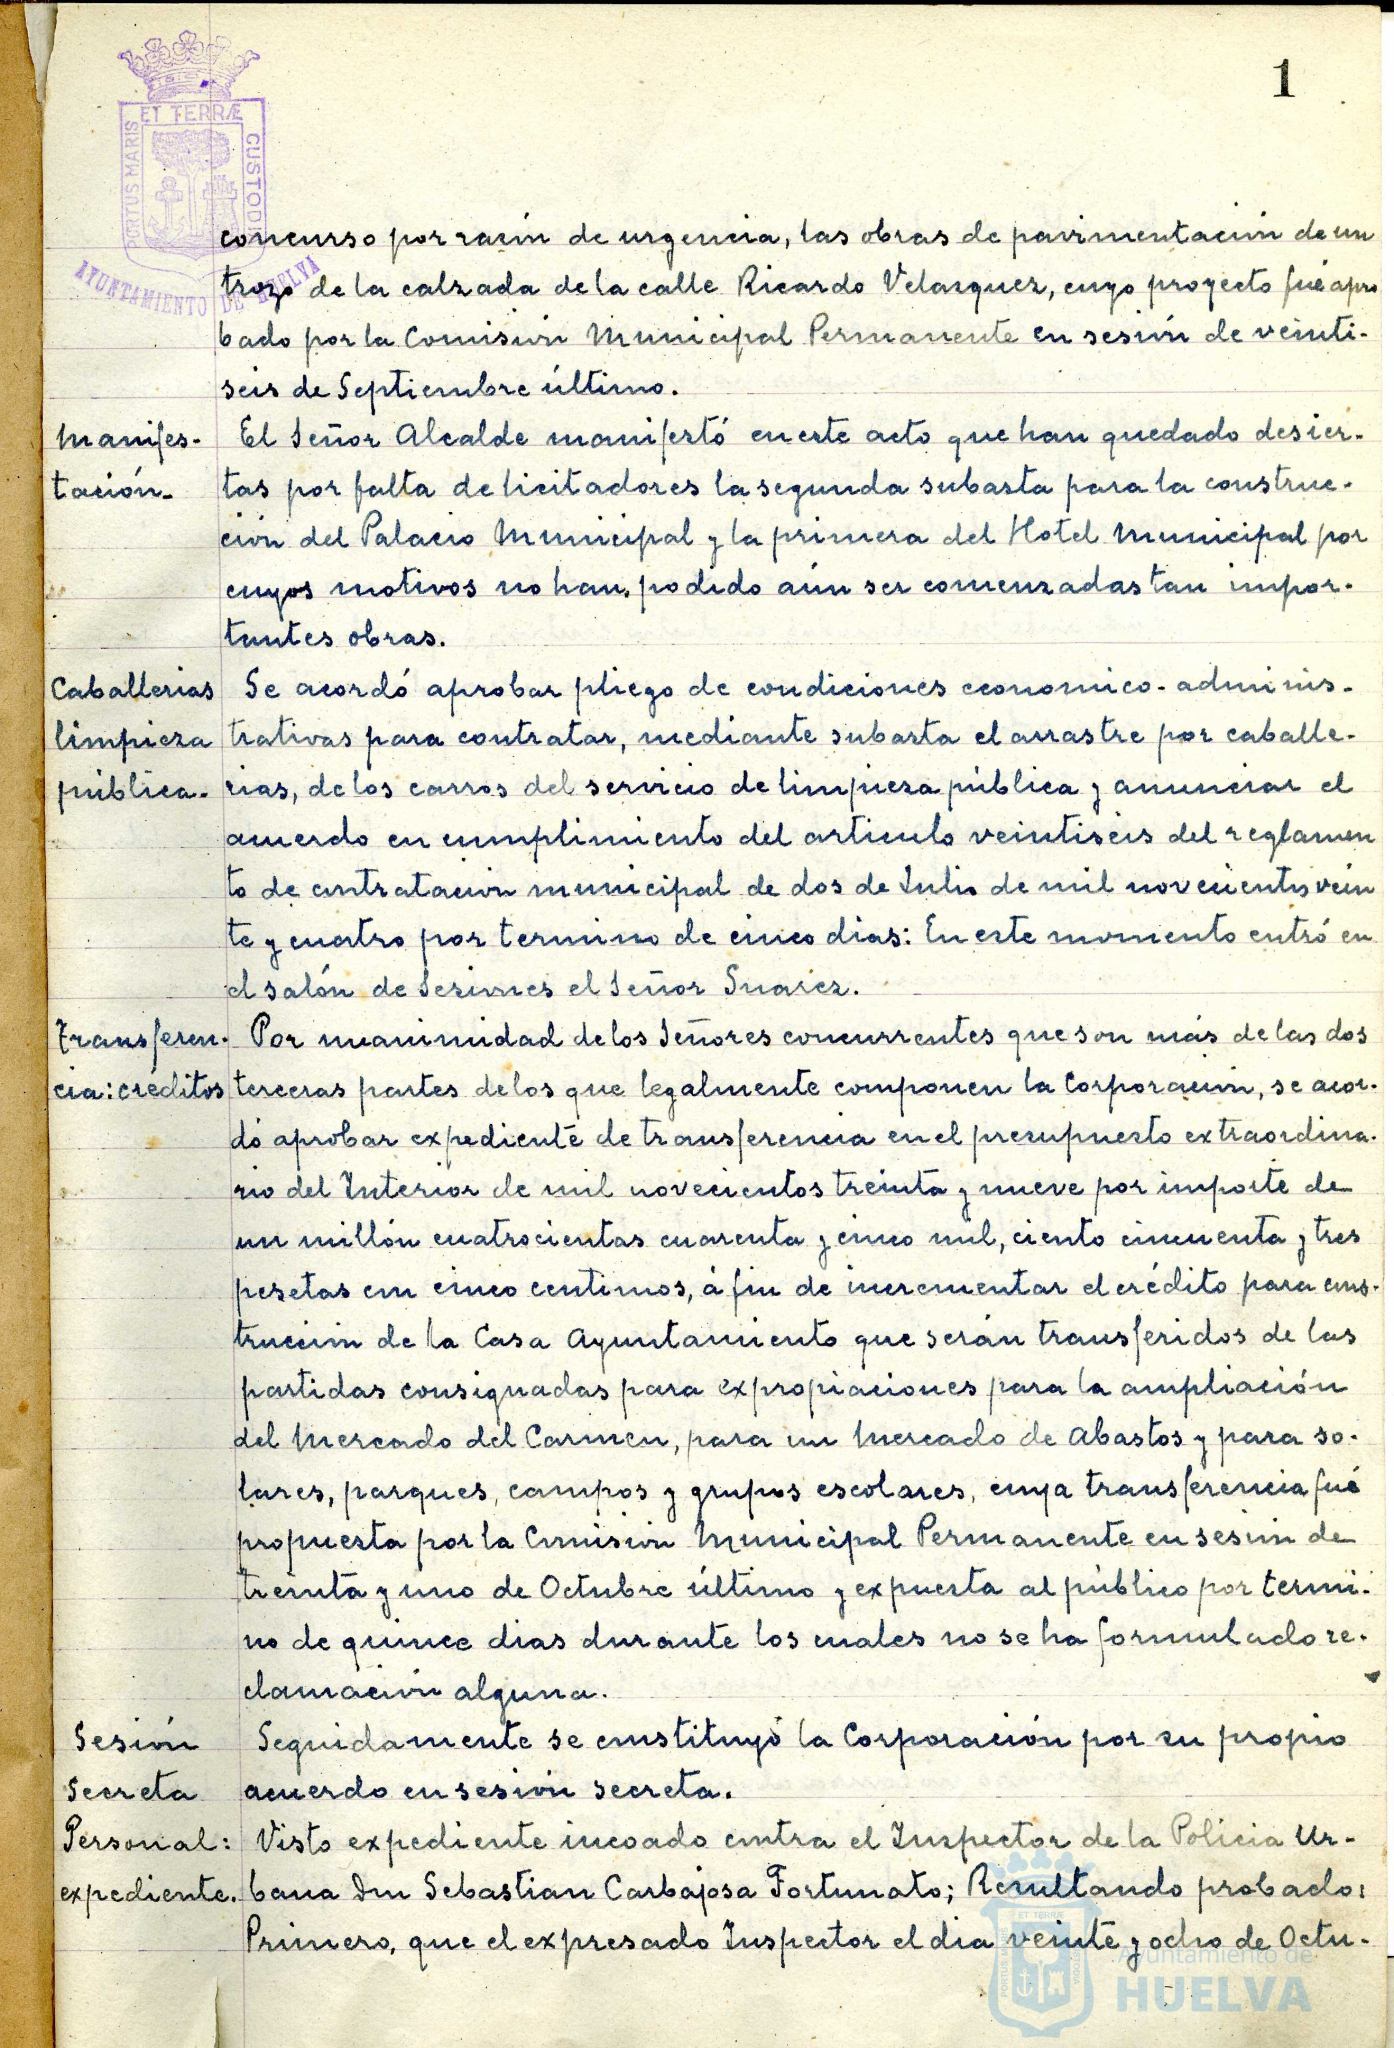 1
ET TERRÆ
PORTUS MARIS
CUSTODIA
AYUNTAMIENTO DE HUELVA
concurso por razón de urgencia, las obras de pavimentación de un
trozo de la calzada de la calle Ricardo Velazquez, cuyo proyecto fué apro
bado por la Comisión Municipal Permanente en sesión de veinti-
seis de Septiembre último.
Manifes- El Señor Alcalde manifestó en este acto que han quedado desier-
tación- tas por falta de licitadores la segunda subasta para la construc-
ción del Palacio Municipal y la primera del Hotel Municipal por
cuyos motivos no han podido aún ser comenzadas tan impor-
tantes obras.
Caballerias Se acordó aprobar pliego de condiciones economico-adminis-
limpieza trativas para contratar, mediante subasta el arrastre por caballe-
pública. rias, de los carros del servicio de limpieza pública y anunciar el
acuerdo en cumplimiento del articulo veintiséis del reglamen
to de contratación municipal de dos de Julio de mil novecientos vein
te y cuatro por termino de cinco dias: En este momento entró en
el salón de Sesiones el Señor Suarez.
Transferen- Por unanimidad de los Señores concurrentes que son más de las dos
cia: créditos terceras partes de los que legalmente componen la Corporación, se acor-
dó aprobar expediente de transferencia en el presupuesto extraordina-
rio del Interior de mil novecientos treinta y nueve por importe de
un millón cuatrocientas cuarenta y cinco mil, ciento cincuenta y tres
pesetas con cinco centimos, á fin de incrementar el crédito para cons-
trucción de la Casa Ayuntamiento que serán transferidos de las
partidas consignadas para expropiaciones para la ampliación
del Mercado del Carmen, para un Mercado de Abastos y para so-
lares, parques, campos y grupos escolares, cuya transferencia fué
propuesta por la Comisión Municipal Permanente en sesión de
treinta y uno de Octubre último y expuesta al público por termi-
no de quince dias durante los cuales no se ha formulado re-
clamación alguna.
Sesión Seguidamente se constituyó la Corporación por su propio
Secreta acuerdo en sesión secreta.
Personal: Visto expediente incoado contra el Inspector de la Policia Ur-
expediente. bana Don Sebastian Carbajosa Fortunato; Resultando probado:
Primero, que el expresado Inspector el dia veinte y ocho de Octu-
Ayuntamiento de
HUELVA